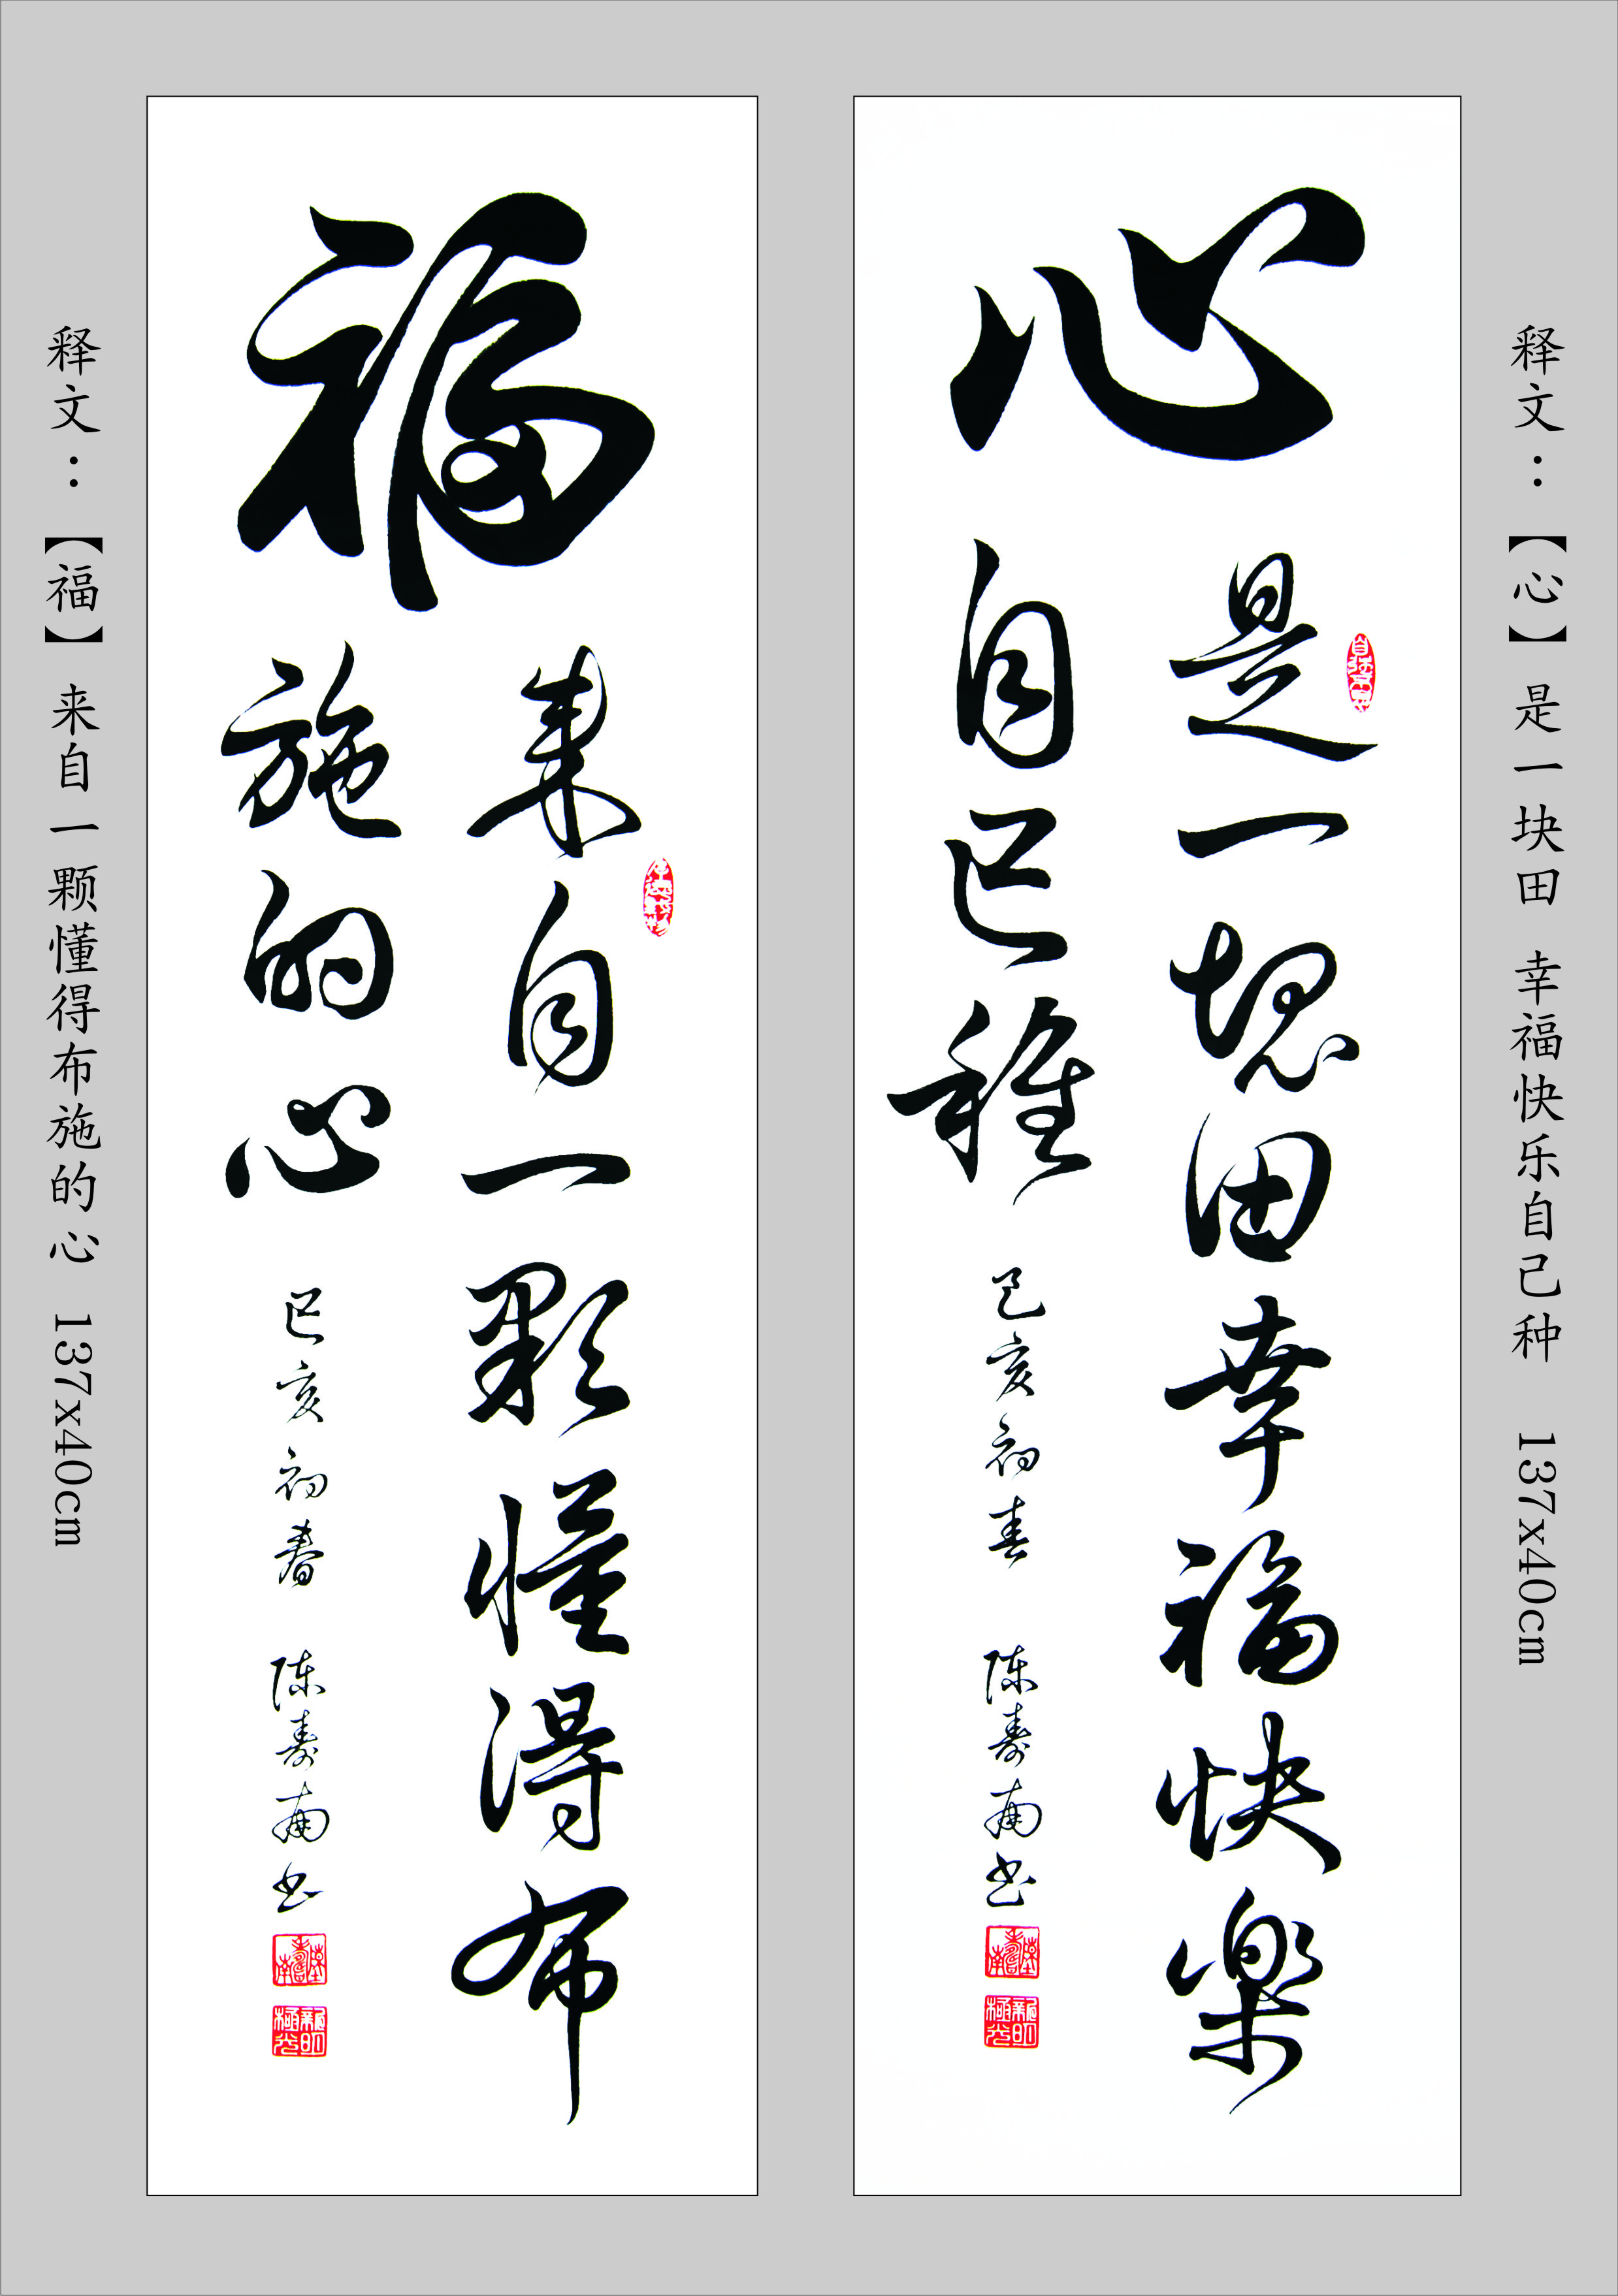 释文：【心】是一块田 幸福快乐自己种 137x40cm
心
是一塊田幸福快樂
自己種
己亥初春 陈寿南书
福
来自一颗懂得布
施的心
己亥初春 陈寿南书
释文：【福】来自一颗懂得布施的心 137x40cm